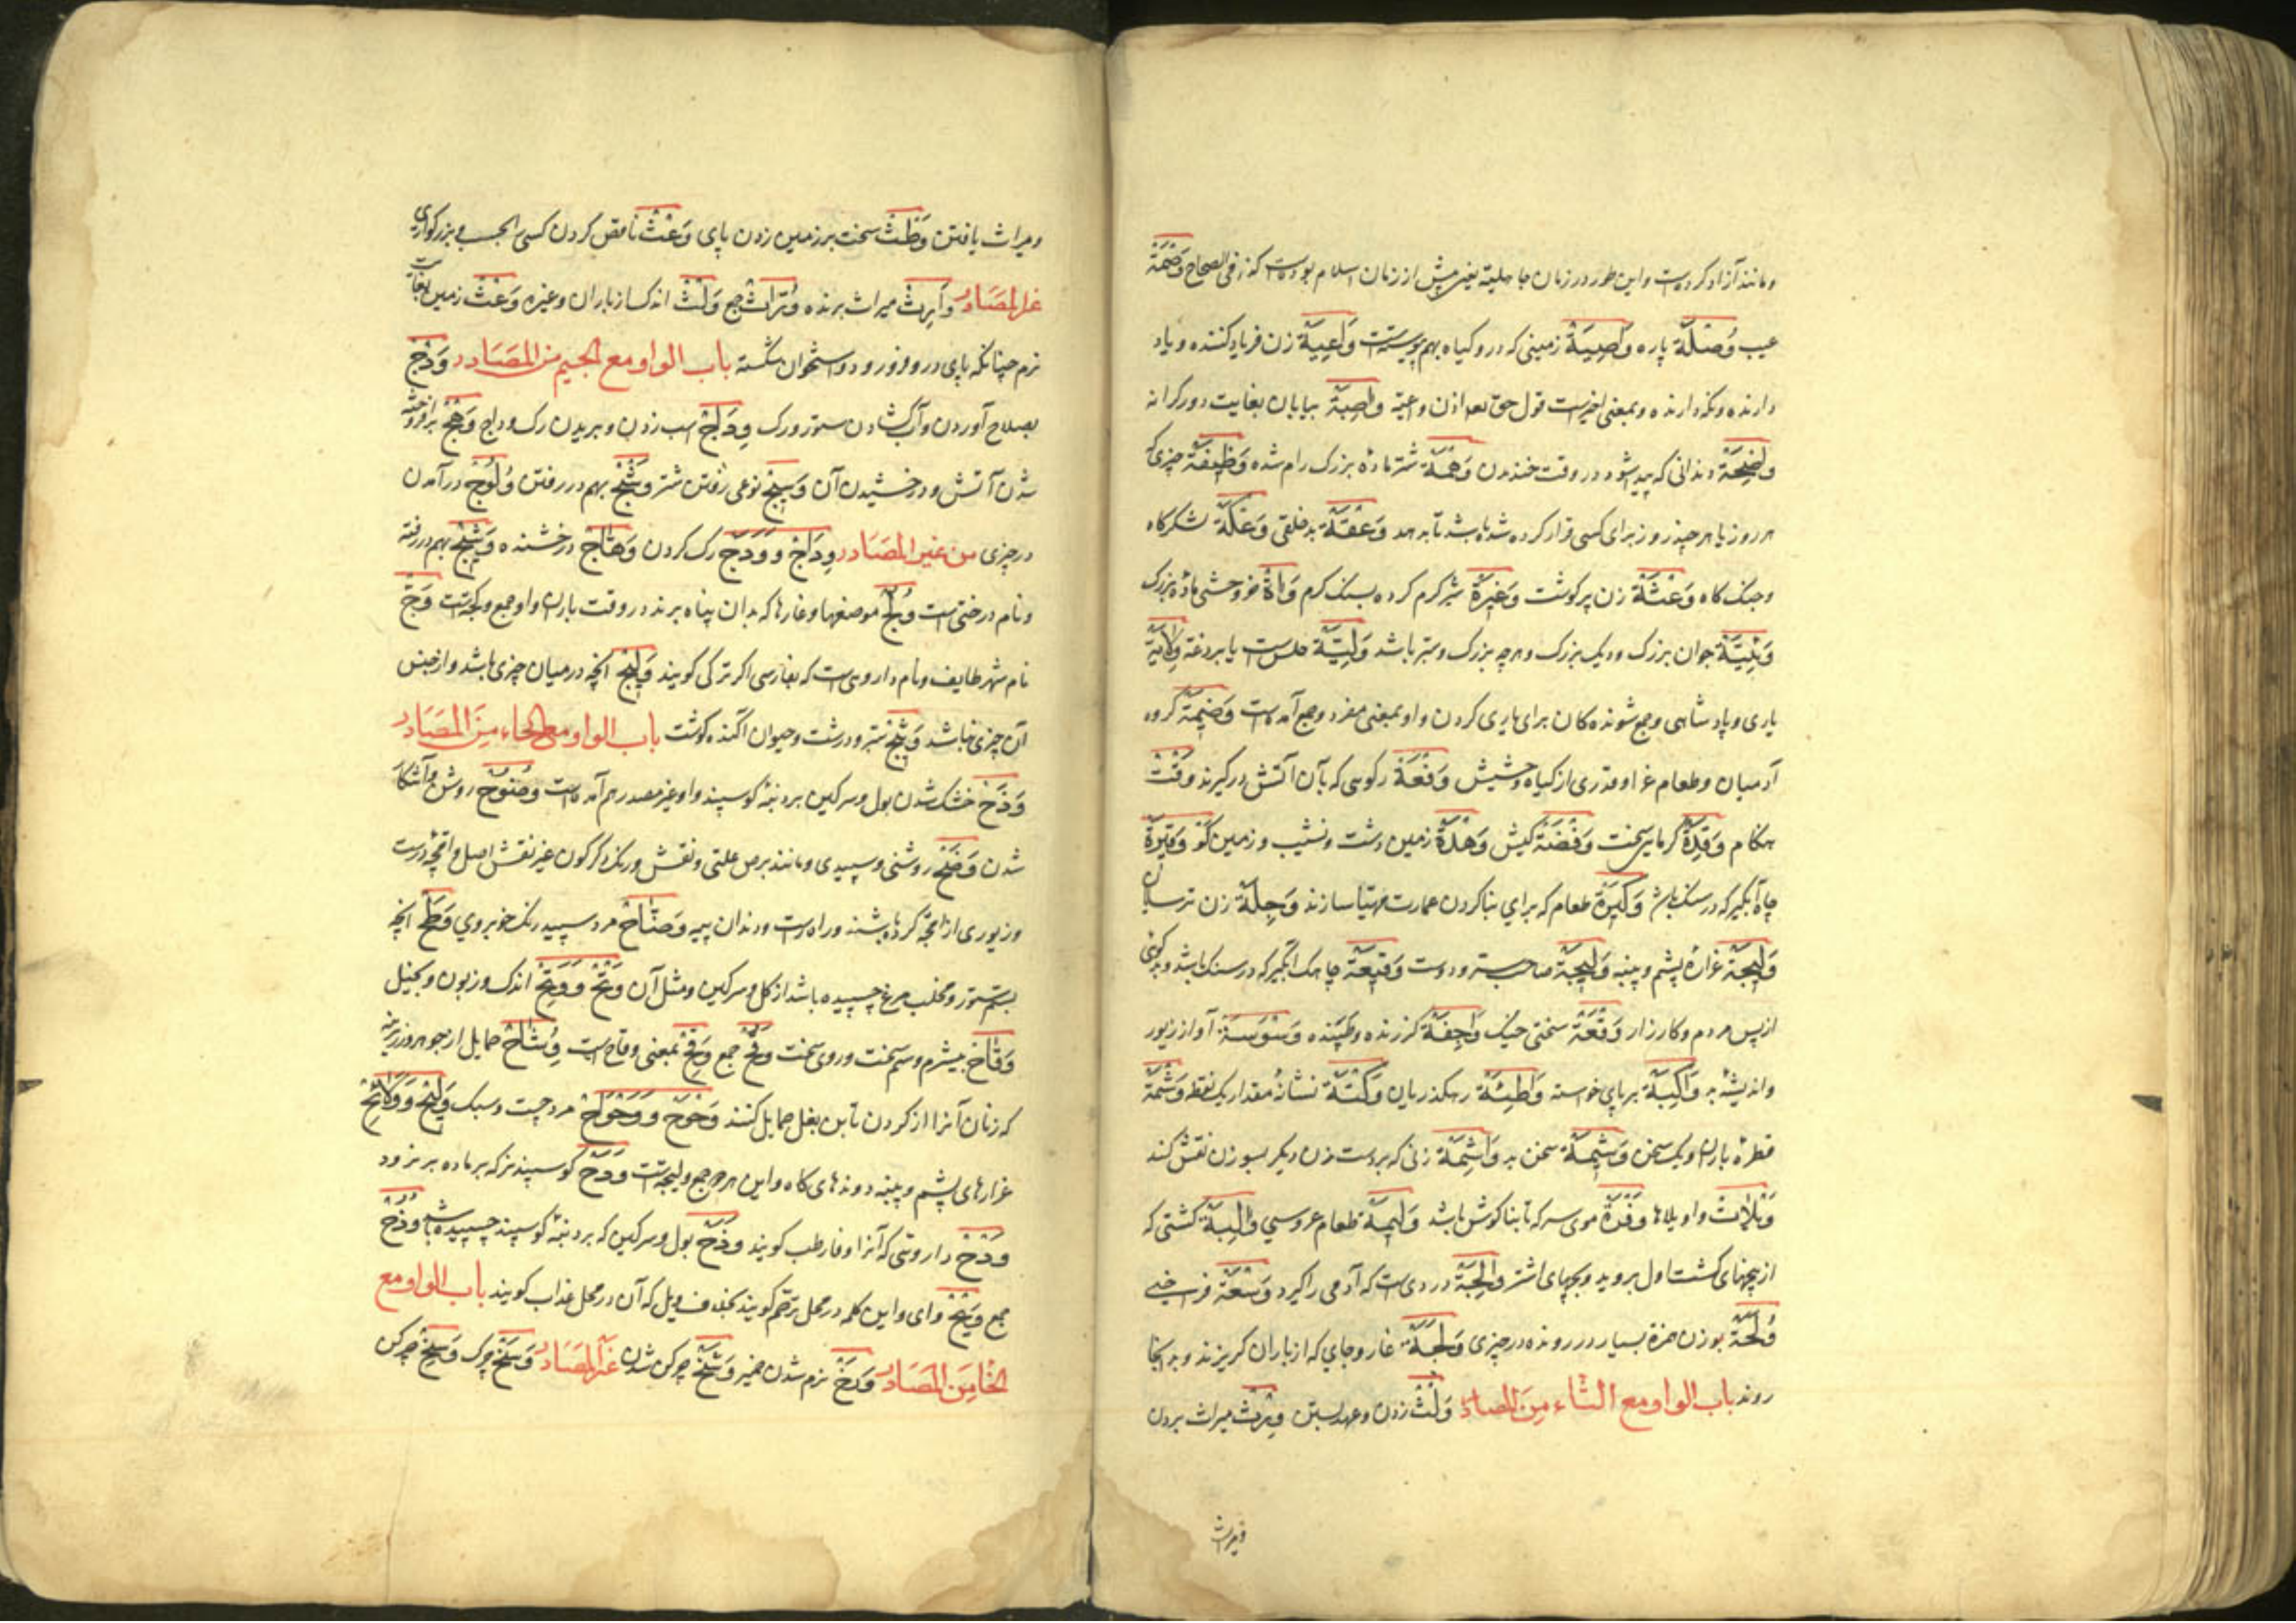 ومانند آزاد کرده است واین طور در زمان جاهلیة یعنی پیش از زمان اسلام بوده است کذا فی الصحاح وَصْمَة
عیب وُصْلَة پاره وَاصِیَة زمینی که درو کیاه بهم پیوسته است وَاعِیَة زن فریاد کننده و یاد
دارنده ونکه دارنده وبمعنی اخیرست قول حق تعه اذن واعیه وَاصِبَة بیابان بغایت دور کرانه
وَاضِحَة دندانی که پیدا شود در وقت خندیدن وَهْمَة شتر مادهٔ بزرک رام شده وَظِیفَة چیزی که
هر روز یا هر چند روز برای کسی قرار کرده شده باشد تا بدهد وَعْقَة بدخلقی وَعْکَة لشکرکاه
وجنک کاه وَعْثَة زن پر کوشت وَغِیرَة شیر کرم کرده بسنک کرم وَآة خر وحشی مادهٔ بزرک
وَئِیَّة جوان بزرک ودیک بزرک وهرچه بزرک وستبر باشد وَلِیَّة حلس است یا بردعه وِلَایَة
یاری و پادشاهی وجمع شونده کان برای یاری کردن واو بمعنی مفرد وجمع آمده است وَضِیمَة کروه
آدمیان وطعام عزا وقدری از کیاه وحشیش وَفِیعَة رکوی که بآن آتش درکیرند وَقْت
هنکام وَقْدَة کرمای سخت وَفْضَة کیش وَهْدَة زمین پست ونشیب وزمین کو وَقِیرَة
چاه آبکیر که در سنک باشد وَکِیرَة طعام که برای بنا کردن عمارت مهیا سازند وَجِلَة زن ترسان
وَلِیجَة غرارهٔ پشم وپنبه وَلِیجَة صاحب سر ودوست وَقِیعَة چاهک آبکیر که در سنک باشد وبدکوئی
از پس مردم وکارزار وَقْعَة سختی جنک وَاجِفَة لرزنده وطپنده وَسْوَسَة آواز زیور
واندیشهٔ بد وَاکِبَة بر پای خواسته وَاطِئَة رهکذریان وَکْتَة نشانهٔ مقدار یک نقطه وَشْمَة
قطرهٔ باران ویک سخن وَشِیمَة سخن بد وَاشِمَة زنی که بر دست زن دیکر بسوزن نقش کند
وَیْلَات واویلاها وَفْرَة موی سر که تا بناکوش باشد وَلِیمَة طعام عروسی وَالِبَة کشتی که
از بیخهای کشت اول بروید وبچهای اشتر وَالِجَة دردی است که آدمی را کیرد وَسْعَة فراخی
وُلَجَة بوزن همزة بسیار در رونده در چیزی وَلَجَة غار وجای که از باران کریزند وبدانجا
روند باب الواو مع الثاء مِنَ المصادر وَلْث زدن وعهد بستن وِرْث میراث بردن
ومیراث
ومیراث یافتن وَطْث سخت بر زمین زدن پای وَعْث ناقص کردن کسی را حسب وبزرکواری
غیر المَصَادر وَارِث میراث برنده وُرَّاث جمع وَلْث اندک از باران وغیره وَعْث زمین بغایت
نرم چنانکه پای درو فرو رود واستخوان شکسته باب الواو مع الجیم من المَصَادر وَدْج
بصلاح آوردن وآب کشادن ستور ورک وِدَاج اسب زدن وبریدن رک وداج وَهْج برافروخته
شدن آتش ودرخشیدن آن وَسِیج نوعی رفتن شتر وَشْج بهم در رفتن وُلُوج درآمدن
در چیزی من غیر المَصَادر وِدَاج وَوَدَج رک کردن وَهَّاج درخشنده وَشِیج بهم در رفته
ونام درختی است وُلُج موضعها وغارها که بدان پناه برند در وقت باران واو جمع ولجة است وَجّ
نام شهر طایف ونام داروی است که بفارسی اکر ترکی کویند وَلِیج آنچه در میان چیزی باشد واز جنس
آن چیزی نباشد وَثِیج ستبر ودرشت وحیوان آکنده کوشت باب الواو مع الحاء مِنَ المَصَادر
وَذَح خشک شدن بول وسرکین بر دنبهٔ کوسپند واو غیر مصدر هم آمده است وُضُوح روشن وآشکارا
شدن وَضَح روشنی وسپیدی ومانند برص علتی ونقش ورنک دکرکون غیر نقش اصل واقچهٔ درست
وزیوری از اقچه کرده باشند وراه راست ودندان پیه وَضَّاح مرد سپید رنک خوبروی وَطَح آنچه
بسم ستور ومخلب مرغ چسپیده باشد از کل وسرکین ومثل آن وَتْح وَوَتِح اندک وزبون وبخیل
وَقَاح بیشرم وسم سخت وروی سخت وُقُح جمع وَقِح بمعنی وقاح است وِشَاح حمایل از جواهر وزر ...
که زنان آنرا از کردن تا بن بغل حمایل کنند وَحْوَح وَوَحْوَاح مرد چست وسبک وَلِیح وَوَلَائِح
غرارهای پشم وپنبه ودوندهای کاه واین هر دو جمع ولیحه است وَدَح کوسپند نر که بر ماده بر نرود
وَدَح داروئی که آنرا وفار طب کویند وَذَح بول وسرکین که بر دنبهٔ کوسپند چسپیده باشد وُذْح
جمع وَیْح وای واین کلمه در محل ترحم کویند بخلاف ویل که آن در محل عذاب کویند باب الواو مع
الخا مِنَ المَصَادر وَرَخ نرم شدن خمیر وَسَخ چرکن شدن غیر المَصَادر وَسَخ چرک وَسِخ چرکن